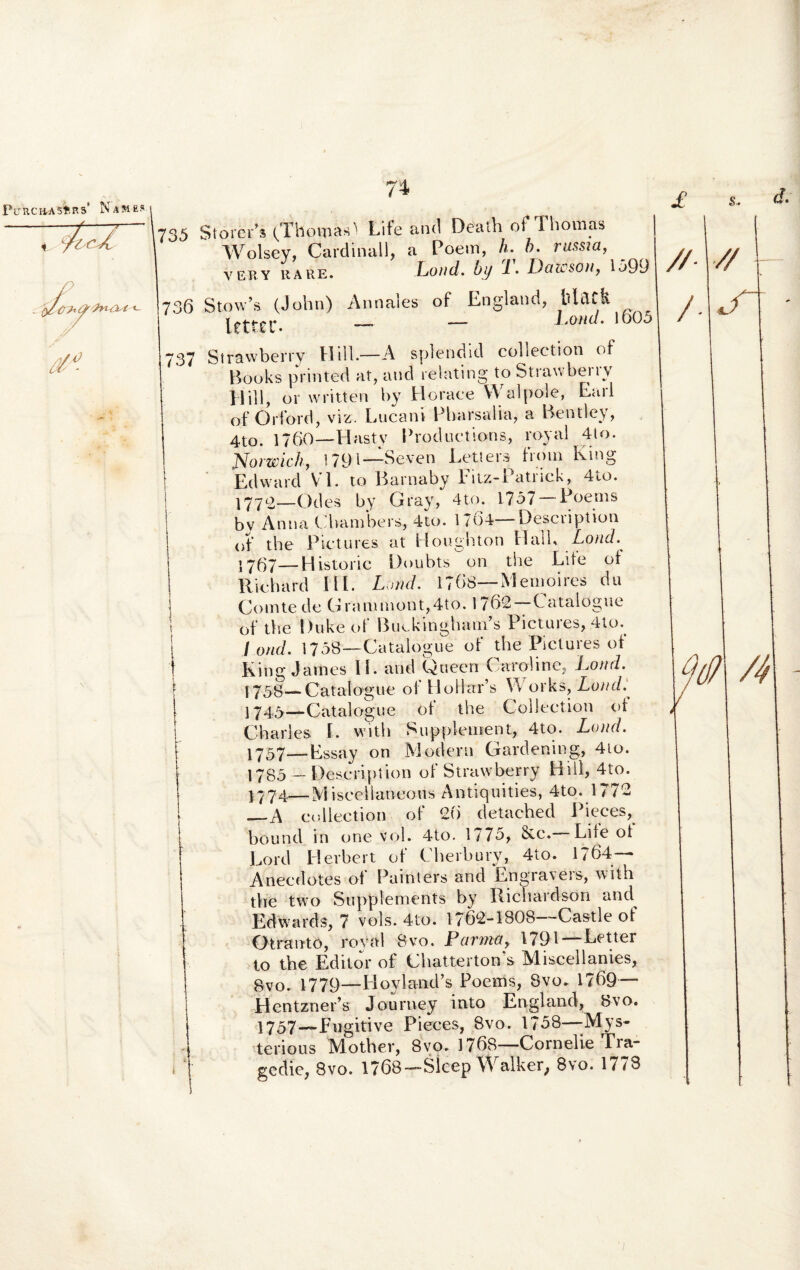 74
Purchasers' Names
£ s. d.
735 Storer's (Thomas) Life and Death of Thomas
Wolsey, Cardinall, a Poem, h. b. russia,
VERY RARE. Lond. by T. Dawson, 1599
11. 11
736 Stow's (John) Annales of England, black
letter. — — Lond. 1605
Longman
1. 5
737 Strawberry Hill.—A splendid collection of
do.
Books printed at, and relating to Strawberry
Hill, or written by Horace Walpole, Earl
of Orford, viz. Lucani Pharsalia, a Bentley,
4to. 1760—Hasty Productions, royal 4to.
Norwich, 1791—Seven Letters from King
Edward VI. to Barnaby Fitz-Patrick, 4to.
1772—Odes by Gray, 4to. 1757—Poems
by Anna Chambers, 4to. 1764—Description
of the Pictures at Houghton Hall, Lond.
1767—Historic Doubts on the Life of
Richard III. Lond. 1768—Memoires du
Comte de Grammont, 4to. 1762—Catalogue
of the Duke of Buckingham's Pictures, 4to.
Lond. 1758—Catalogue of the Pictures of
King James II. and Queen Caroline, Lond.
1758—Catalogue of Hollar's Works, Lond.
1745—Catalogue of the Collection of
Charles I. with Supplement, 4to. Lond.
1757—Essay on Modern Gardening, 4to.
1785—Description of Strawberry Hill, 4to.
1774—Miscellaneous Antiquities, 4to. 1772
—A collection of 26 detached Pieces,
bound in one vol. 4to. 1775, &c.—Life of
Lord Herbert of Cherbury, 4to. 1764—
Anecdotes of Painters and Engravers, with
the two Supplements by Richardson and
Edwards, 7 vols. 4to. 1762-1808—Castle of
Otranto, royal 8vo. Parma, 1791—Letter
to the Editor of Chatterton's Miscellanies,
8vo. 1779—Hoyland's Poems, 8vo. 1769—
Hentzner's Journey into England, 8vo.
1757—Fugitive Pieces, 8vo. 1758—Mys-
terious Mother, 8vo. 1768—Cornelie Tra-
gedie, 8vo. 1768—Sleep Walker, 8vo. 1778